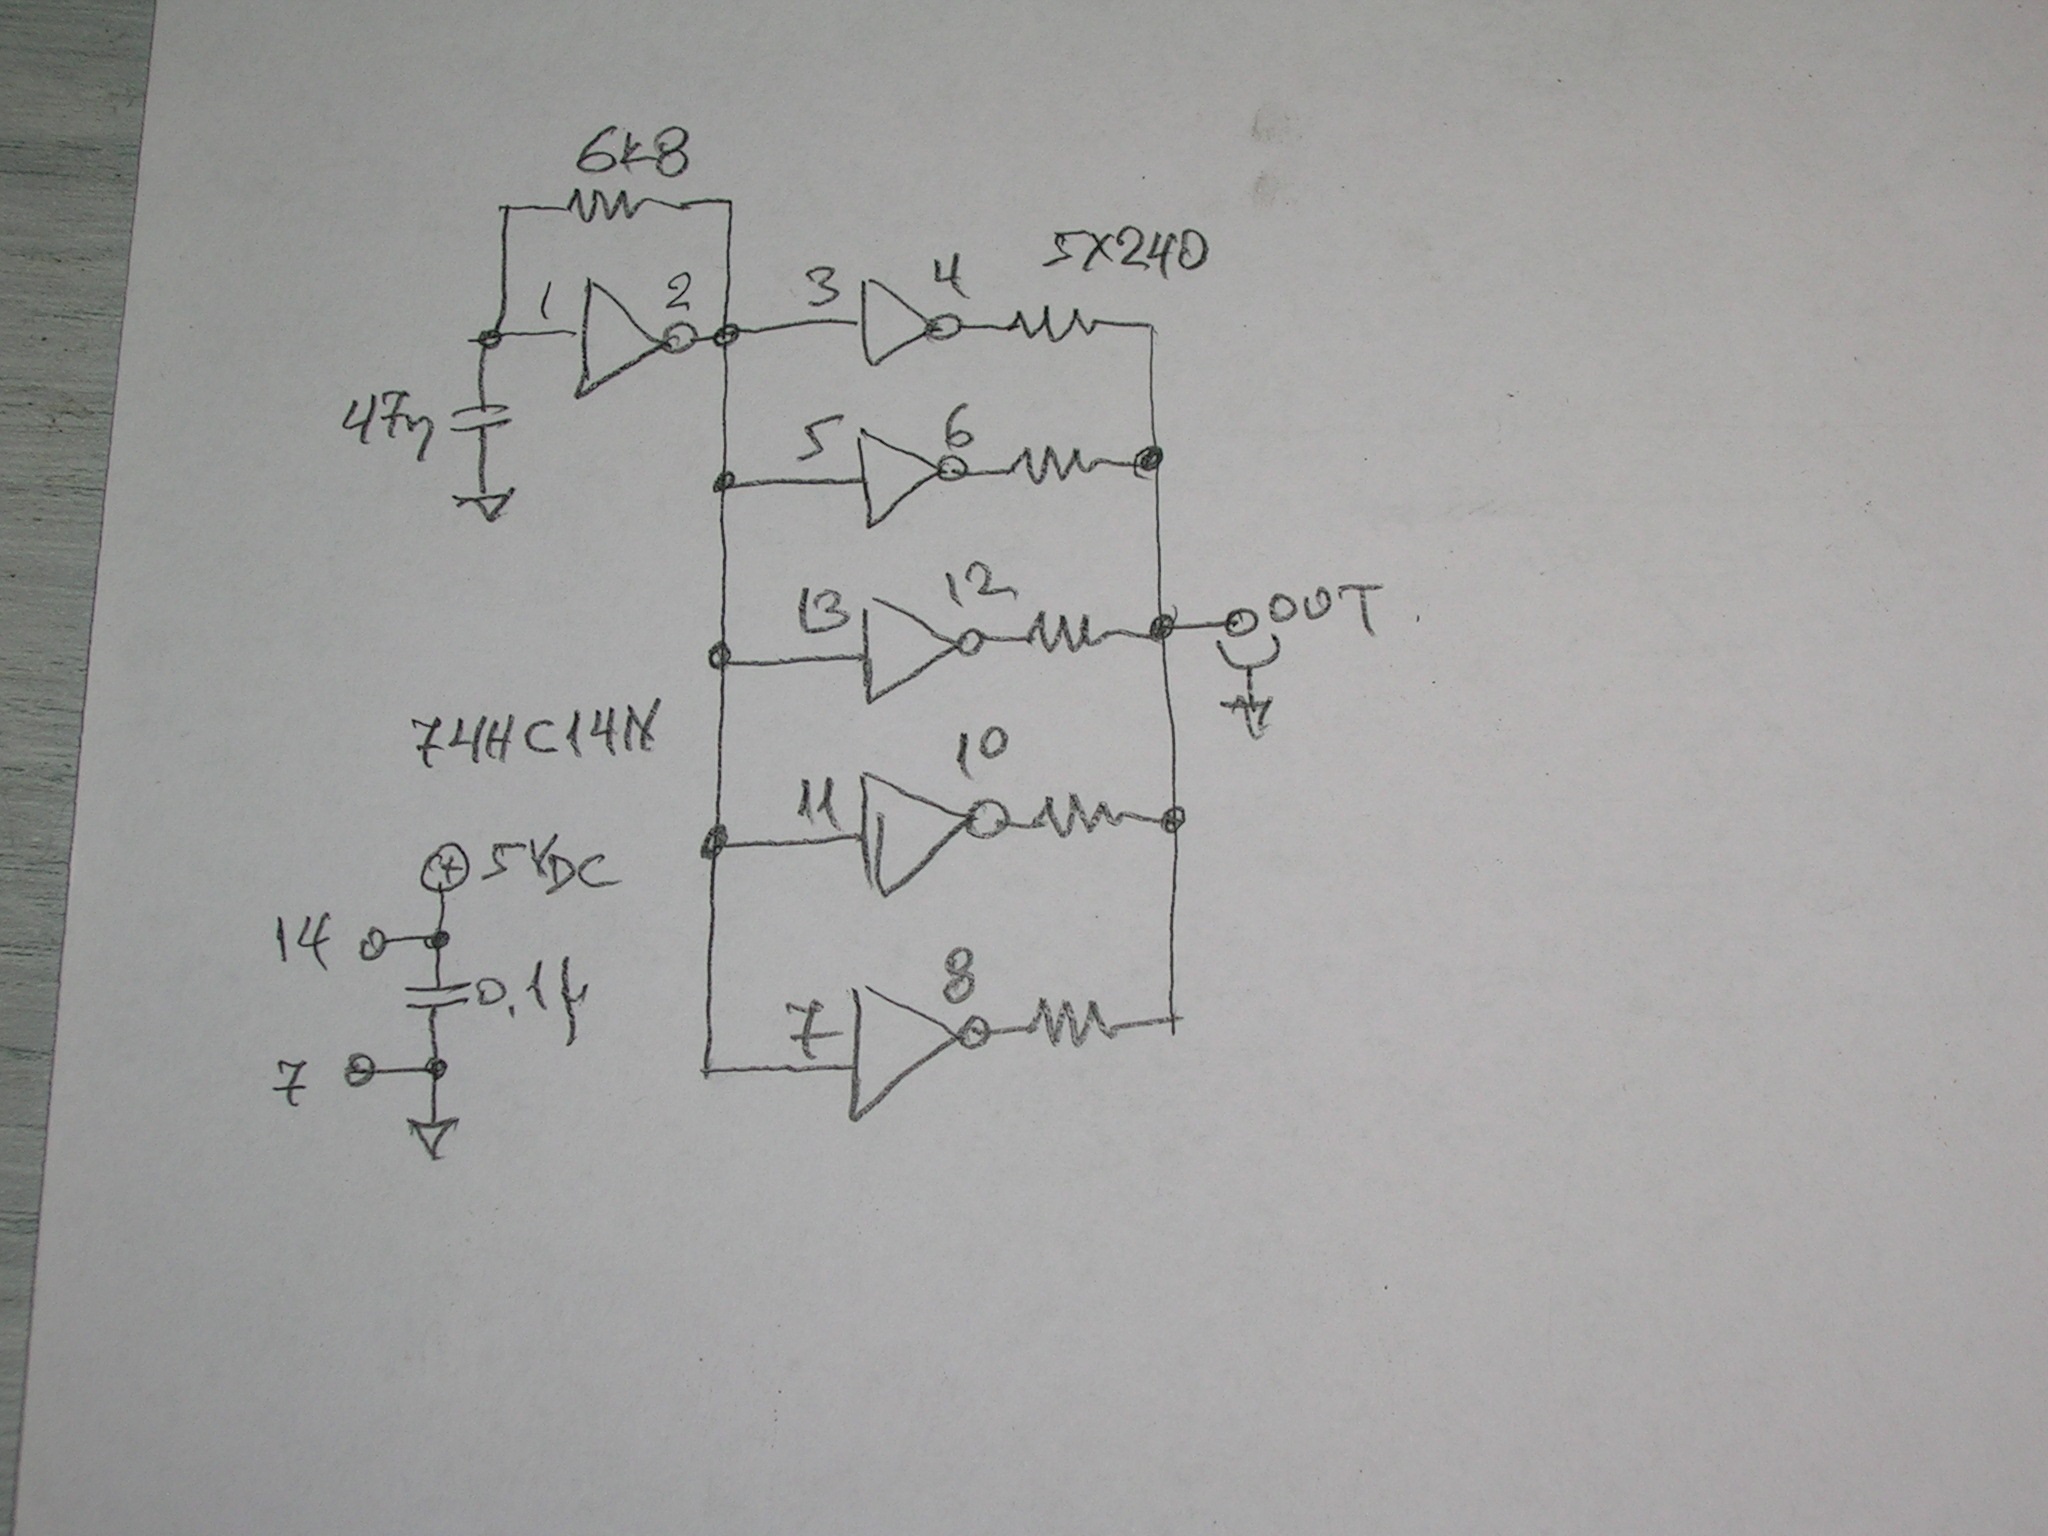 6k8
5X240
1 2 3 4
47n
5 6
13 12
OUT
74HC14N
11 10
5VDC
14
0,1µ
7 8
7